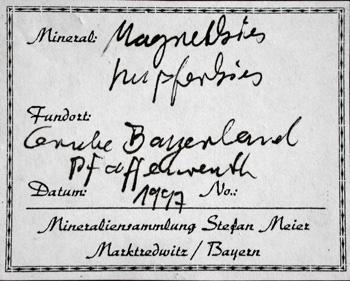 Mineral: Magnetkies
Kupferkies
Fundort:
Grube Bayerland
Pfaffenreuth
Datum: 1997 No.:
Mineraliensammlung Stefan Meier
Marktredwitz / Bayern